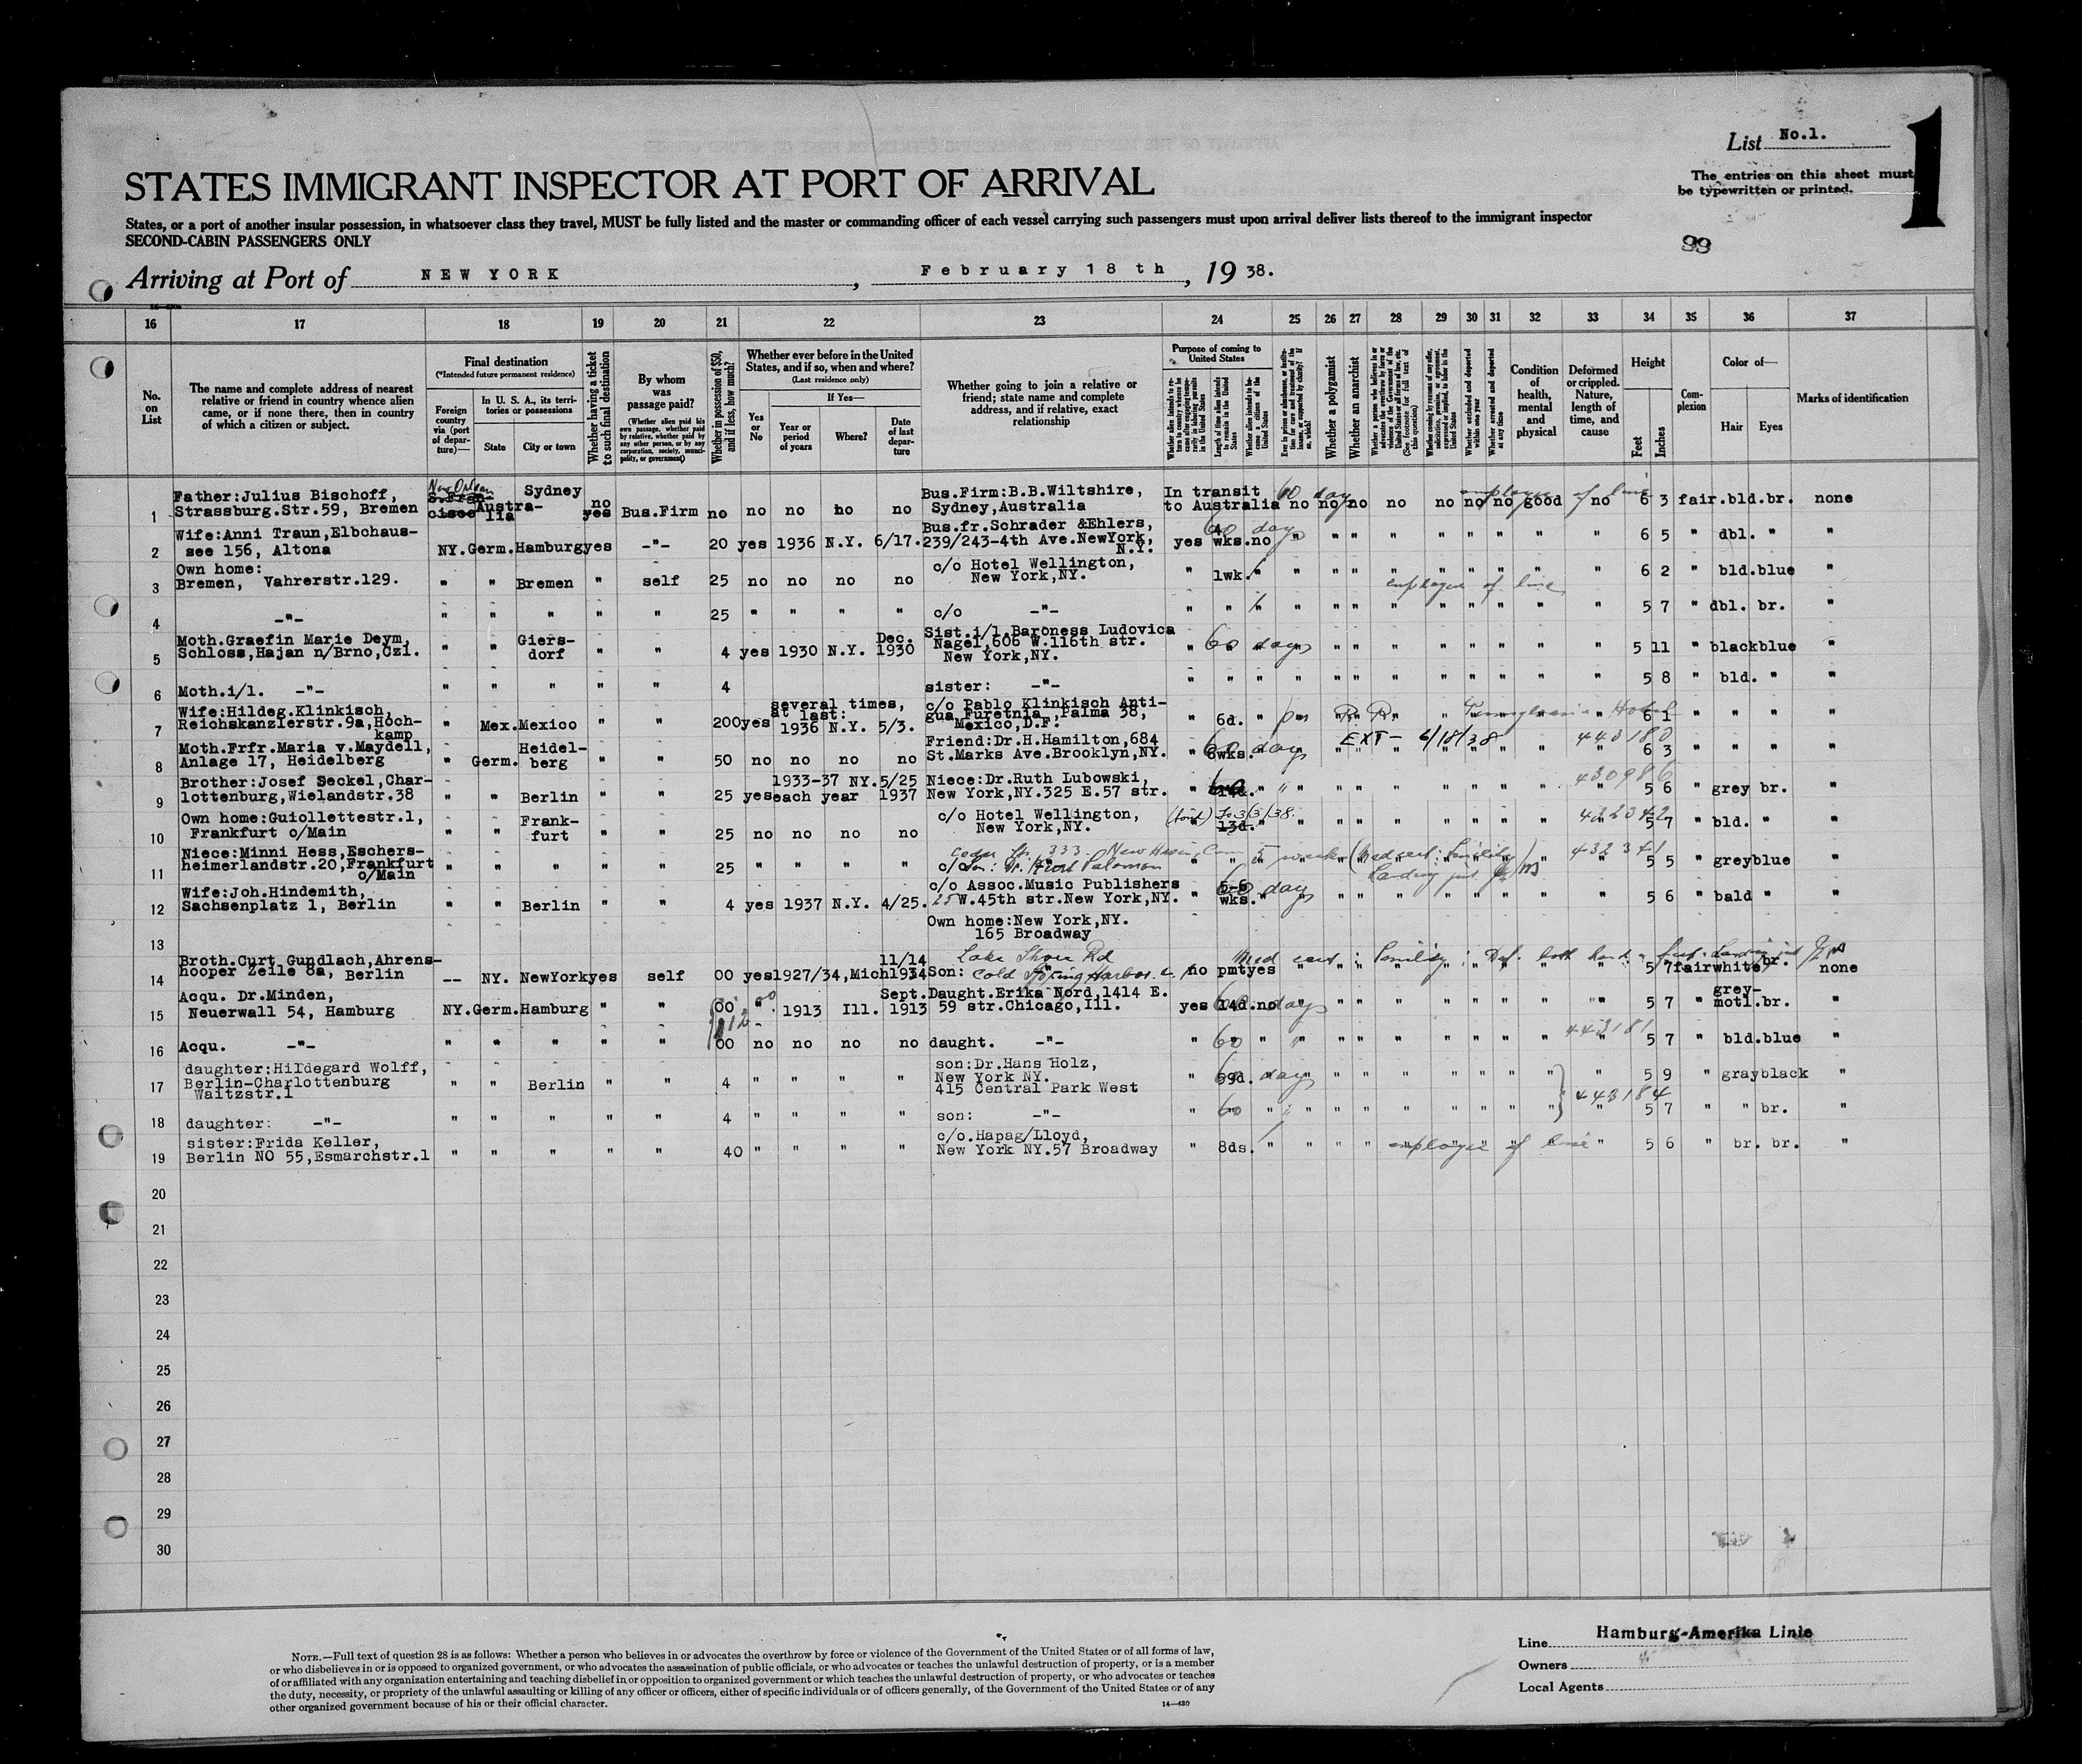 List No.1.
1
The entries on this sheet must
be typewritten or printed.
STATES IMMIGRANT INSPECTOR AT PORT OF ARRIVAL
States, or a port of another insular possession, in whatsoever class they travel, MUST be fully listed and the master or commanding officer of each vessel carrying such passengers must upon arrival deliver lists thereof to the immigrant inspector
SECOND-CABIN PASSENGERS ONLY
99
Arriving at Port of NEW YORK, February 18 th, 19 38.
16 17 18 19 20 21 22 23 24 25 26 27 28 29 30 31 32 33 34 35 36 37
No. on List
The name and complete address of nearest
relative or friend in country whence alien
came, or if none there, then in country
of which a citizen or subject.
Final destination
(*Intended future permanent residence)
Foreign country via (port of departure)—
In U. S. A., its territories or possessions
State
City or town
Whether having a ticket to such final destination
By whom was passage paid?
(Whether alien paid his own passage, whether paid by relative, whether paid by any other person, or by any corporation, society, municipality, or government)
Whether in possession of $50, and if less, how much?
Whether ever before in the United States, and if so, when and where?
(Last residence only)
Yes or No
If Yes—
Year or period of years
Where?
Date of last departure
Whether going to join a relative or
friend; state name and complete
address, and if relative, exact
relationship
Purpose of coming to United States
Length of time alien intends to remain in the United States
Whether alien intends to become a citizen of the United States
Whether a polygamist
Whether an anarchist
(See footnote for full text of this question)
Whether excluded and deported within one year
Whether arrested and deported at any time
Condition of health, mental and physical
Deformed or crippled. Nature, length of time, and cause
Height
Feet
Inches
Complexion
Color of—
Hair
Eyes
Marks of identification
1 Father:Julius Bischoff, Strassburg.Str.59, Bremen New Orlean S.Fran-cisco Austra-lia Sydney no yes Bus.Firm no no no no no Bus.Firm:B.B.Wiltshire, Sydney,Australia In transit to Australia 60 days no no no no no no no good no 6 3 fair. bld. br. none
employee of line
2 Wife:Anni Traun,Elbchaus-see 156, Altona NY. Germ. Hamburg yes -"- 20 yes 1936 N.Y. 6/17. Bus.fr.Schrader &Ehlers, 239/243-4th Ave.NewYork, N.Y. yes wks. no 60 days " " " " " " " " " 6 5 " dbl. " "
3 Own home: Bremen, Vahrerstr.129. " " Bremen " self 25 no no no no c/o Hotel Wellington, New York,NY. " 1wk. " " " " " " " " " " 6 2 " bld. blue "
employee of line
4 -"- " " " " " 25 " " " " c/o -"- " " " " " " " " " " " " 5 7 " dbl. br. "
5 Moth.Graefin Marie Deym, Schloss,Hajan n/Brno,Czl. " " Giers-dorf " " 4 yes 1930 N.Y. Dec. 1930 Sist.i/l.Baroness Ludovica Nagel,606 W.116th str. New York,NY. " 60 days " " " " " " " " " 5 11 " black blue "
6 Moth.i/l. -"- " " " " " 4 sister: -"- " " " " " " " " " " " " 5 8 " bld. " "
7 Wife:Hildeg.Klinkisch, Reichskanzlerstr.9a,Hoch-kamp " Mex. Mexico " " 200 yes several times, at last: 1936 N.Y. 5/3. c/o Pablo Klinkisch Anti-gua Furetnia ,Palma 38, Mexico,D.F. " 6d. " " " " " " Pennsylvania Hotel 6 1 " " " "
8 Moth.Frfr.Maria v.Maydell, Anlage 17, Heidelberg " Germ. Heidel-berg " " 50 no no no no Friend:Dr.H.Hamilton,684 St.Marks Ave.Brooklyn,NY. " 8wks. 60 days EXT- 6/18/38 443180 6 3 " " " "
9 Brother:Josef Seckel,Char-lottenburg,Wielandstr.38 " " Berlin " " 25 yes 1933-37 NY. each year 5/25 1937 Niece:Dr.Ruth Lubowski, New York,NY.325 E.57 str. " 14d. " " " " " " " " " " 430986 5 6 " grey br. "
10 Own home:Guiollettestr.1, Frankfurt o/Main " " Frank-furt " " 25 no no no no c/o Hotel Wellington, New York,NY. " 13d. To 3/3/38. " " " " " " " " " 5 7 " bld. " "
11 Niece:Minni Hess,Eschers-heimerlandstr.20,Frankfurt o/Main " " " " " 25 " " " " c/o Son: Dr. Kurt Salomon Cedar St. 333 New Haven, Conn 5 weeks (Med cert: Senility Landing 432341 5 5 " grey blue "
12 Wife:Joh.Hindemith, Sachsenplatz 1, Berlin " " Berlin " " 4 yes 1937 N.Y. 4/25. c/o Assoc.Music Publishers 25 W.45th str.New York,NY. " 5-6 wks. 60 days " " " " " " " " " 5 6 " bald " "
13 Own home:New York,NY. 165 Broadway
14 Broth.Curt Gundlach,Ahrens-hooper Zeile 8a, Berlin -- NY. NewYork yes self 00 yes 1927/34,Mich 11/14 1934 Son: Lake Shore Rd Cold Spring Harbor no pmt yes Med cert: Senility: 5 7 fair white br. none
15 Acqu. Dr.Minden, Neuerwall 54, Hamburg NY. Germ. Hamburg " " 00 " 1913 Ill. Sept. 1913 Daught.Erika Nord,1414 E. 59 str.Chicago,Ill. yes 14d. no 60 days " " " " " " " " 5 7 " grey-motl. br. "
16 Acqu. -"- " " " " " 00 no no no no daught. -"- " 60 " " " " " " " " " " 443181 5 7 " bld. blue "
17 daughter:Hildegard Wolff, Berlin-Charlottenburg Waitzstr.1 " " Berlin " " 4 " " " " son:Dr.Hans Holz, New York NY. 415 Central Park West " 59d. 60 days " " " " " " " " " 5 9 " gray black "
18 daughter: -"- " " " " " 4 " " " " son: -"- " 60 " " " " " " " " " " 443184 5 7 " " br. "
19 sister:Frida Keller, Berlin NO 55,Esmarchstr.1 " " " " " 40 " " " " c/o.Hapag/Lloyd, New York NY.57 Broadway " 8ds. " " " " employee of line " 5 6 " br. br. "
20
21
22
23
24
25
26
27
28
29
30
NOTE.—Full text of question 28 is as follows: Whether a person who believes in or advocates the overthrow by force or violence of the Government of the United States or of all forms of law,
or who disbelieves in or is opposed to organized government, or who advocates the assassination of public officials, or who advocates or teaches the unlawful destruction of property, or is a member
of or affiliated with any organization entertaining and teaching disbelief in or opposition to organized government or which teaches the unlawful destruction of property, or who advocates or teaches
the duty, necessity, or propriety of the unlawful assaulting or killing of any officer or officers, either of specific individuals or of officers generally, of the Government of the United States or of any
other organized government because of his or their official character.
14—430
Line Hamburg-Amerika Linie
Owners
Local Agents